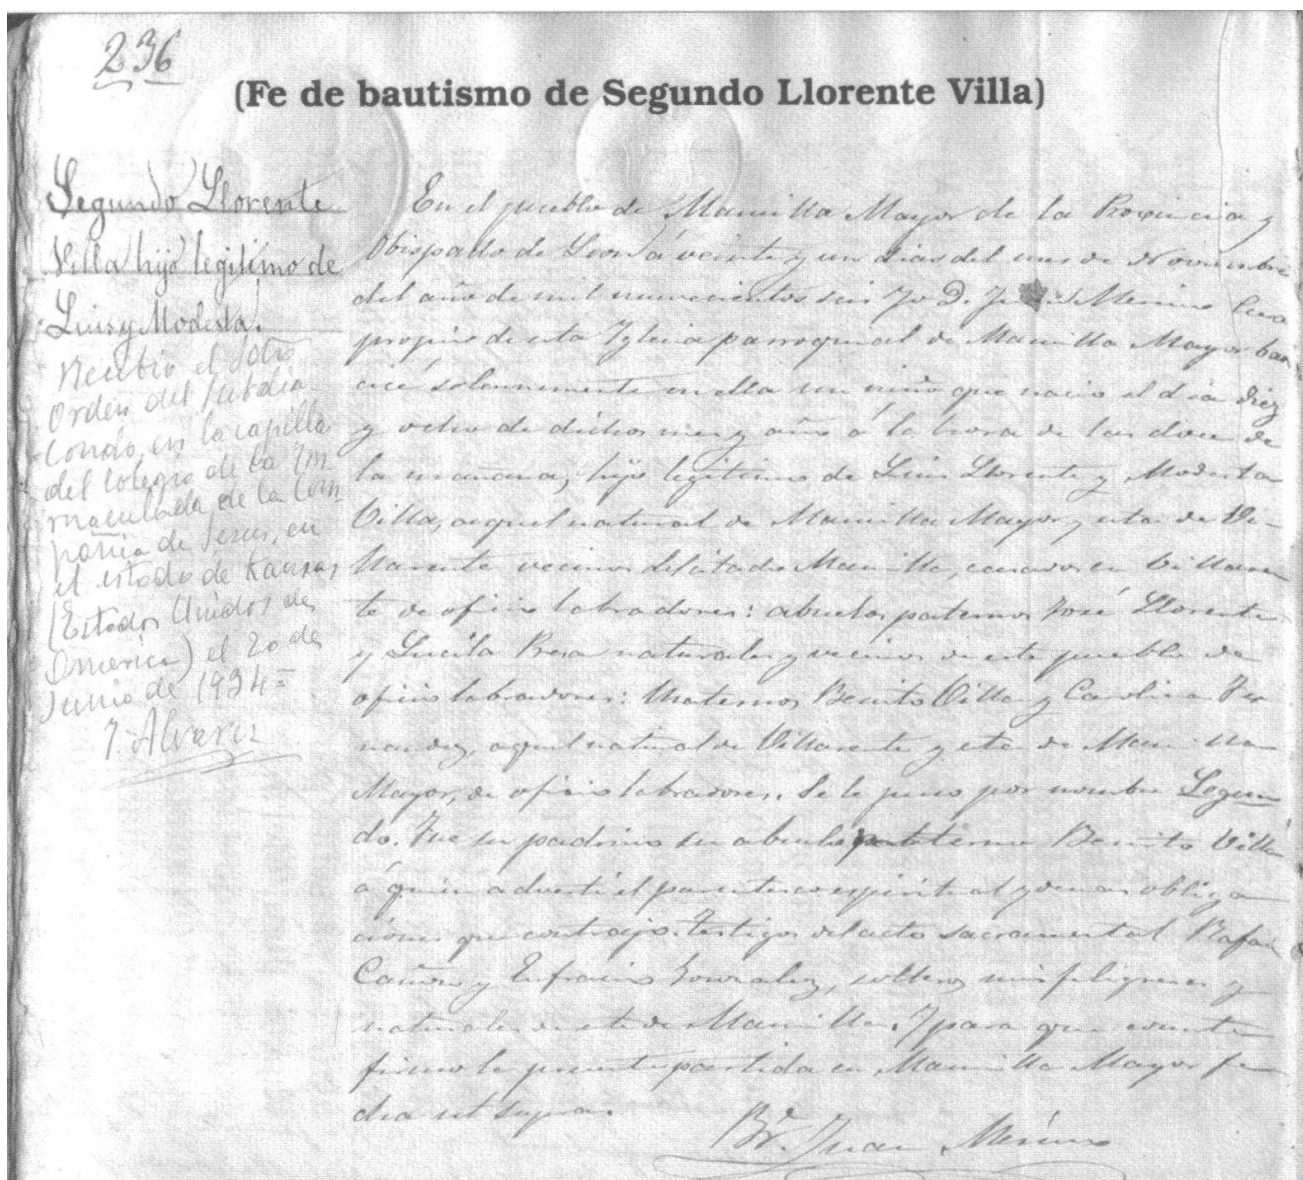 236
(Fe de bautismo de Segundo Llorente Villa)
Segundo Llorente
Villa hijo legitimo de
Luis y Modesta.
Recibió el Stro
Orden del Subdia-
conado, en la capilla
del colegio de la In
maculada de la Com
pañia de Jesus, en
el estado de Kansas
(Estados Unidos de
America) el 20 de
Junio de 1934=
J. Alvarez
En el pueblo de Mansilla Mayor de la Provincia y
Obispado de Leon á veinte y un dias del mes de Noviembre
del año de mil nuevecientos seis Yo D. Merino Cura
propio de esta Iglesia parroquial de Mansilla Mayor bau
ticé solemnemente en ella un niño que nacio el dia diez
y ocho de dichos mes y año á la hora de las doce de
la mañana, hijo legitimo de Luis Llorente y Modesta
Villa, aquel natural de Mansilla Mayor, y esta de Vi-
llarente vecinos del citado Mansilla, casados en Villaren
te de oficio labradores: abuelos paternos José Llorente
y Lucila Presa naturales y vecinos de este pueblo de
oficio labradores: Maternos Benito Villa y Carolina Fer
nandez, aquel natural de Villarente y esta de Mansilla
Mayor, de oficio labradores. Se le puso por nombre Segun
do. Fue su padrino su abuelo materno Benito Villa
á quien adverti el parentesco espiritual y demas obliga
ciones que contrajo. Testigos del acto sacramental Rafael
Cañon y Eufrasio Gonzalez, solteros mis feligreses y
naturales de este de Mansilla. Y para que conste
firmo la presente partida en Mansilla Mayor fe
cha ut supra.
Br. Juan Merino